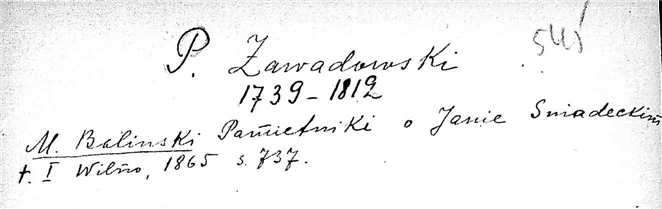 P. Zawadowski
545
1739 - 1812
M. Balinski Pamietniki o Janie Sniadeckim
t. I Wilno, 1865 s. 737.